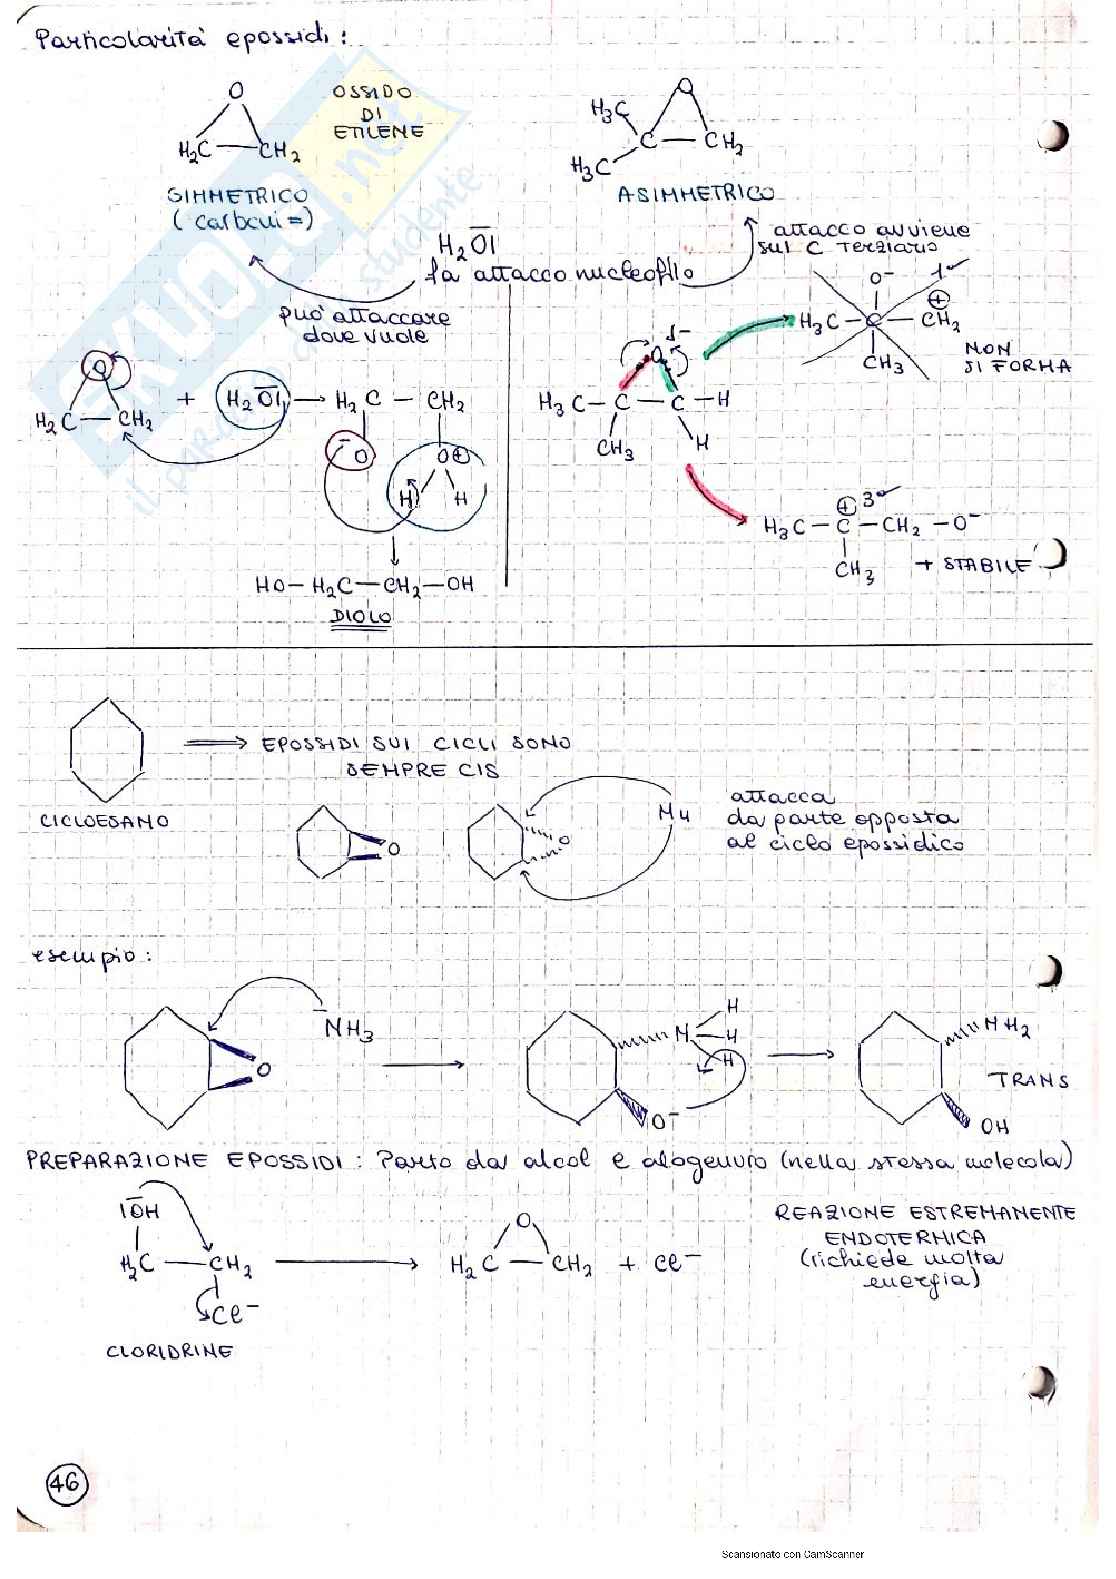 Particolarità epossidi:
O
H₂C — CH₂
OSSIDO
DI
ETILENE
SIMMETRICO
(carboni =)
O
H₃C
C — CH₂
H₃C
ASIMMETRICO
H₂O
fa attacco nucleofilo
attacco avviene
sul C terziario
può attaccare
dove vuole
O
H₂C — CH₂ + H₂O → H₂C — CH₂
⁻O O⊕
H H
HO—H₂C—CH₂—OH
DIOLO
O δ⁻
H₃C—C—C—H
CH₃ H
O⁻ 1°
H₃C—C—CH₂ ⊕
CH₃
NON
SI FORMA
⊕ 3°
H₃C—C—CH₂—O⁻
CH₃
+ STABILE
⟹ EPOSSIDI SUI CICLI SONO
SEMPRE CIS
CICLOESANO
O
O
Nu
attacca
da parte opposta
al ciclo epossidico
esempio:
O
NH₃
N H
H
H
O⁻
NH₂
TRANS
OH
PREPARAZIONE EPOSSIDI: Parto da alcol e alogenuro (nella stessa molecola)
IOH
H₂C — CH₂
Cl⁻
CLORIDRINE
O
H₂C — CH₂ + Cl⁻
REAZIONE ESTREMANENTE
ENDOTERMICA
(richiede molta
energia)
46
Scansionato con CamScanner
SKUOLA.net
il paradiso dello studente